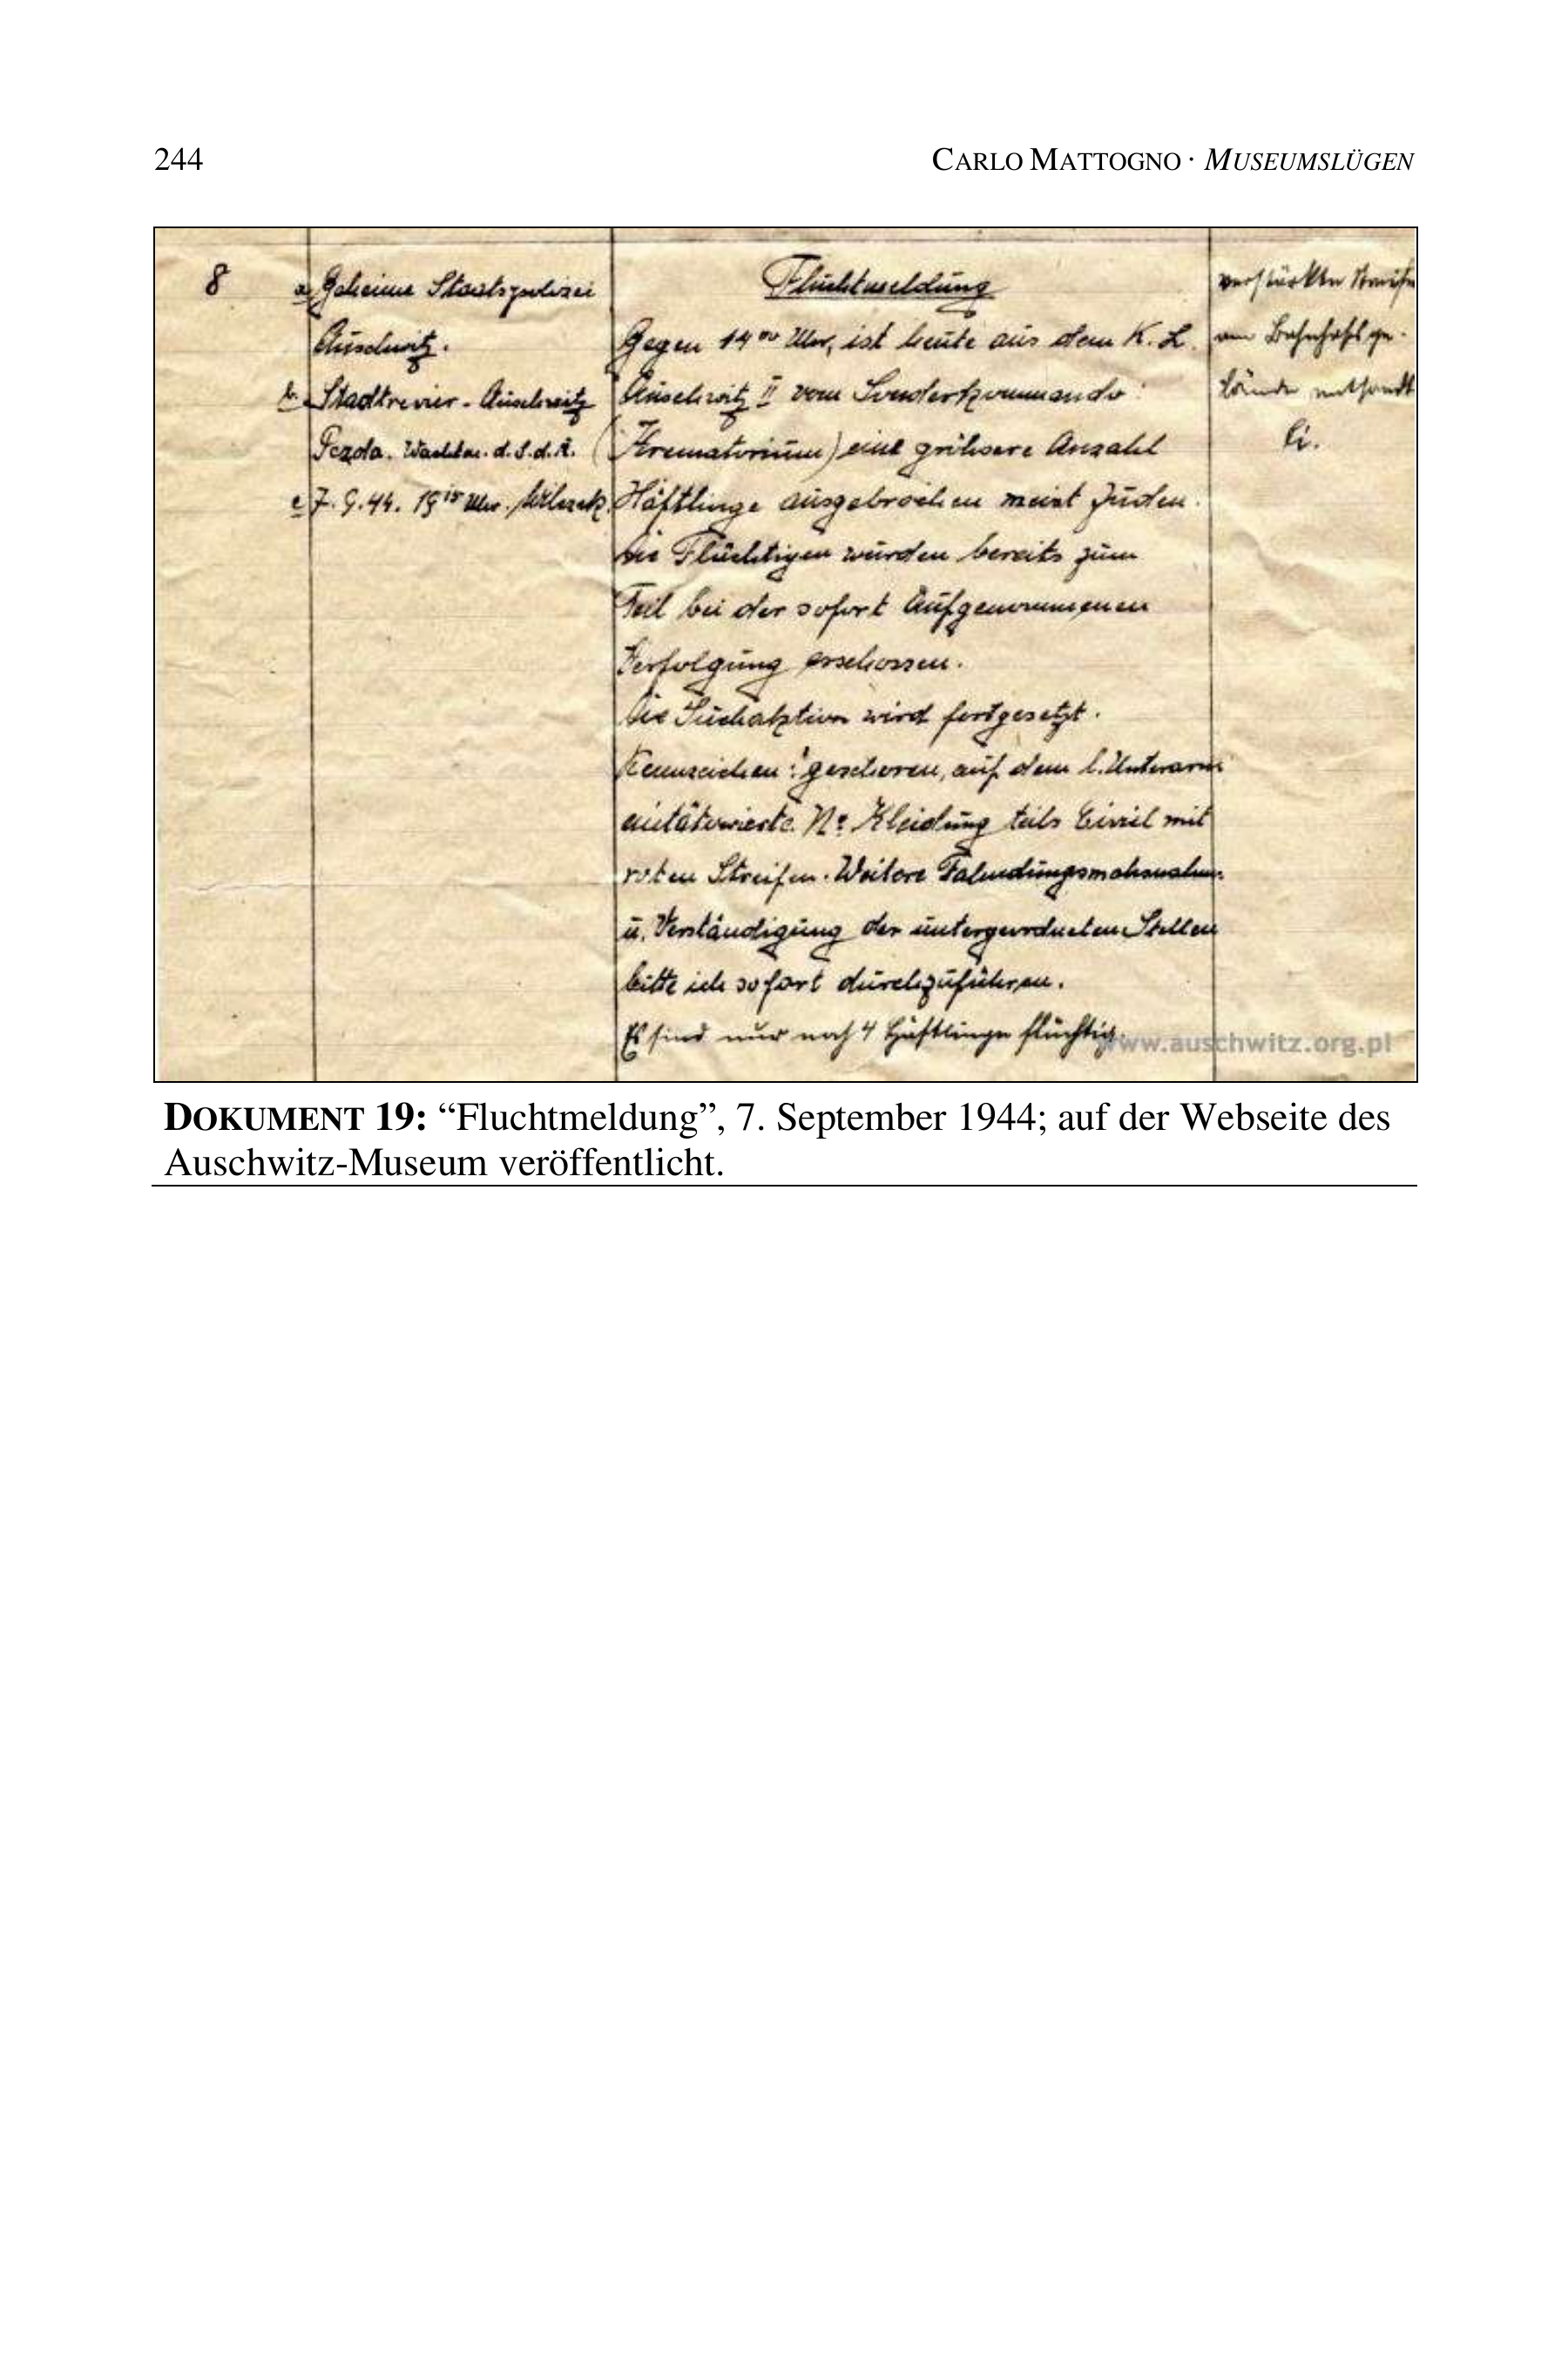 244
CARLO MATTOGNO · MUSEUMSLÜGEN
8
a. Geheime Staatspolizei
Auschwitz.
b. Stadtrevier - Auschwitz
Pezda. Wachtm. d. S. d. R.
c. 7. 9. 44. 19 15 Uhr.
Fluchtmeldung
Gegen 14 00 Uhr, ist heute aus dem K. L.
Auschwitz II vom Sonderkommando
(Krematorium) eine grössere Anzahl
Häftlinge ausgebrochen meist Juden.
Die Flüchtigen wurden bereits zum
Teil bei der sofort Aufgenommenen
Verfolgung erschossen.
Die Suchaktion wird fortgesetzt.
Kennzeichen: geschoren, auf dem l. Unterarm
Nr. Kleidung teils Civil mit
roten Streifen. Weitere
u. Verständigung der untergeordneten Stellen
bitte ich sofort durchzuführen.
Es sind nur noch 4 Häftlinge flüchtig.
verstärkte Streife
am Bahnhofsge-
lände entsandt
www.auschwitz.org.pl
DOKUMENT 19: “Fluchtmeldung”, 7. September 1944; auf der Webseite des
Auschwitz-Museum veröffentlicht.